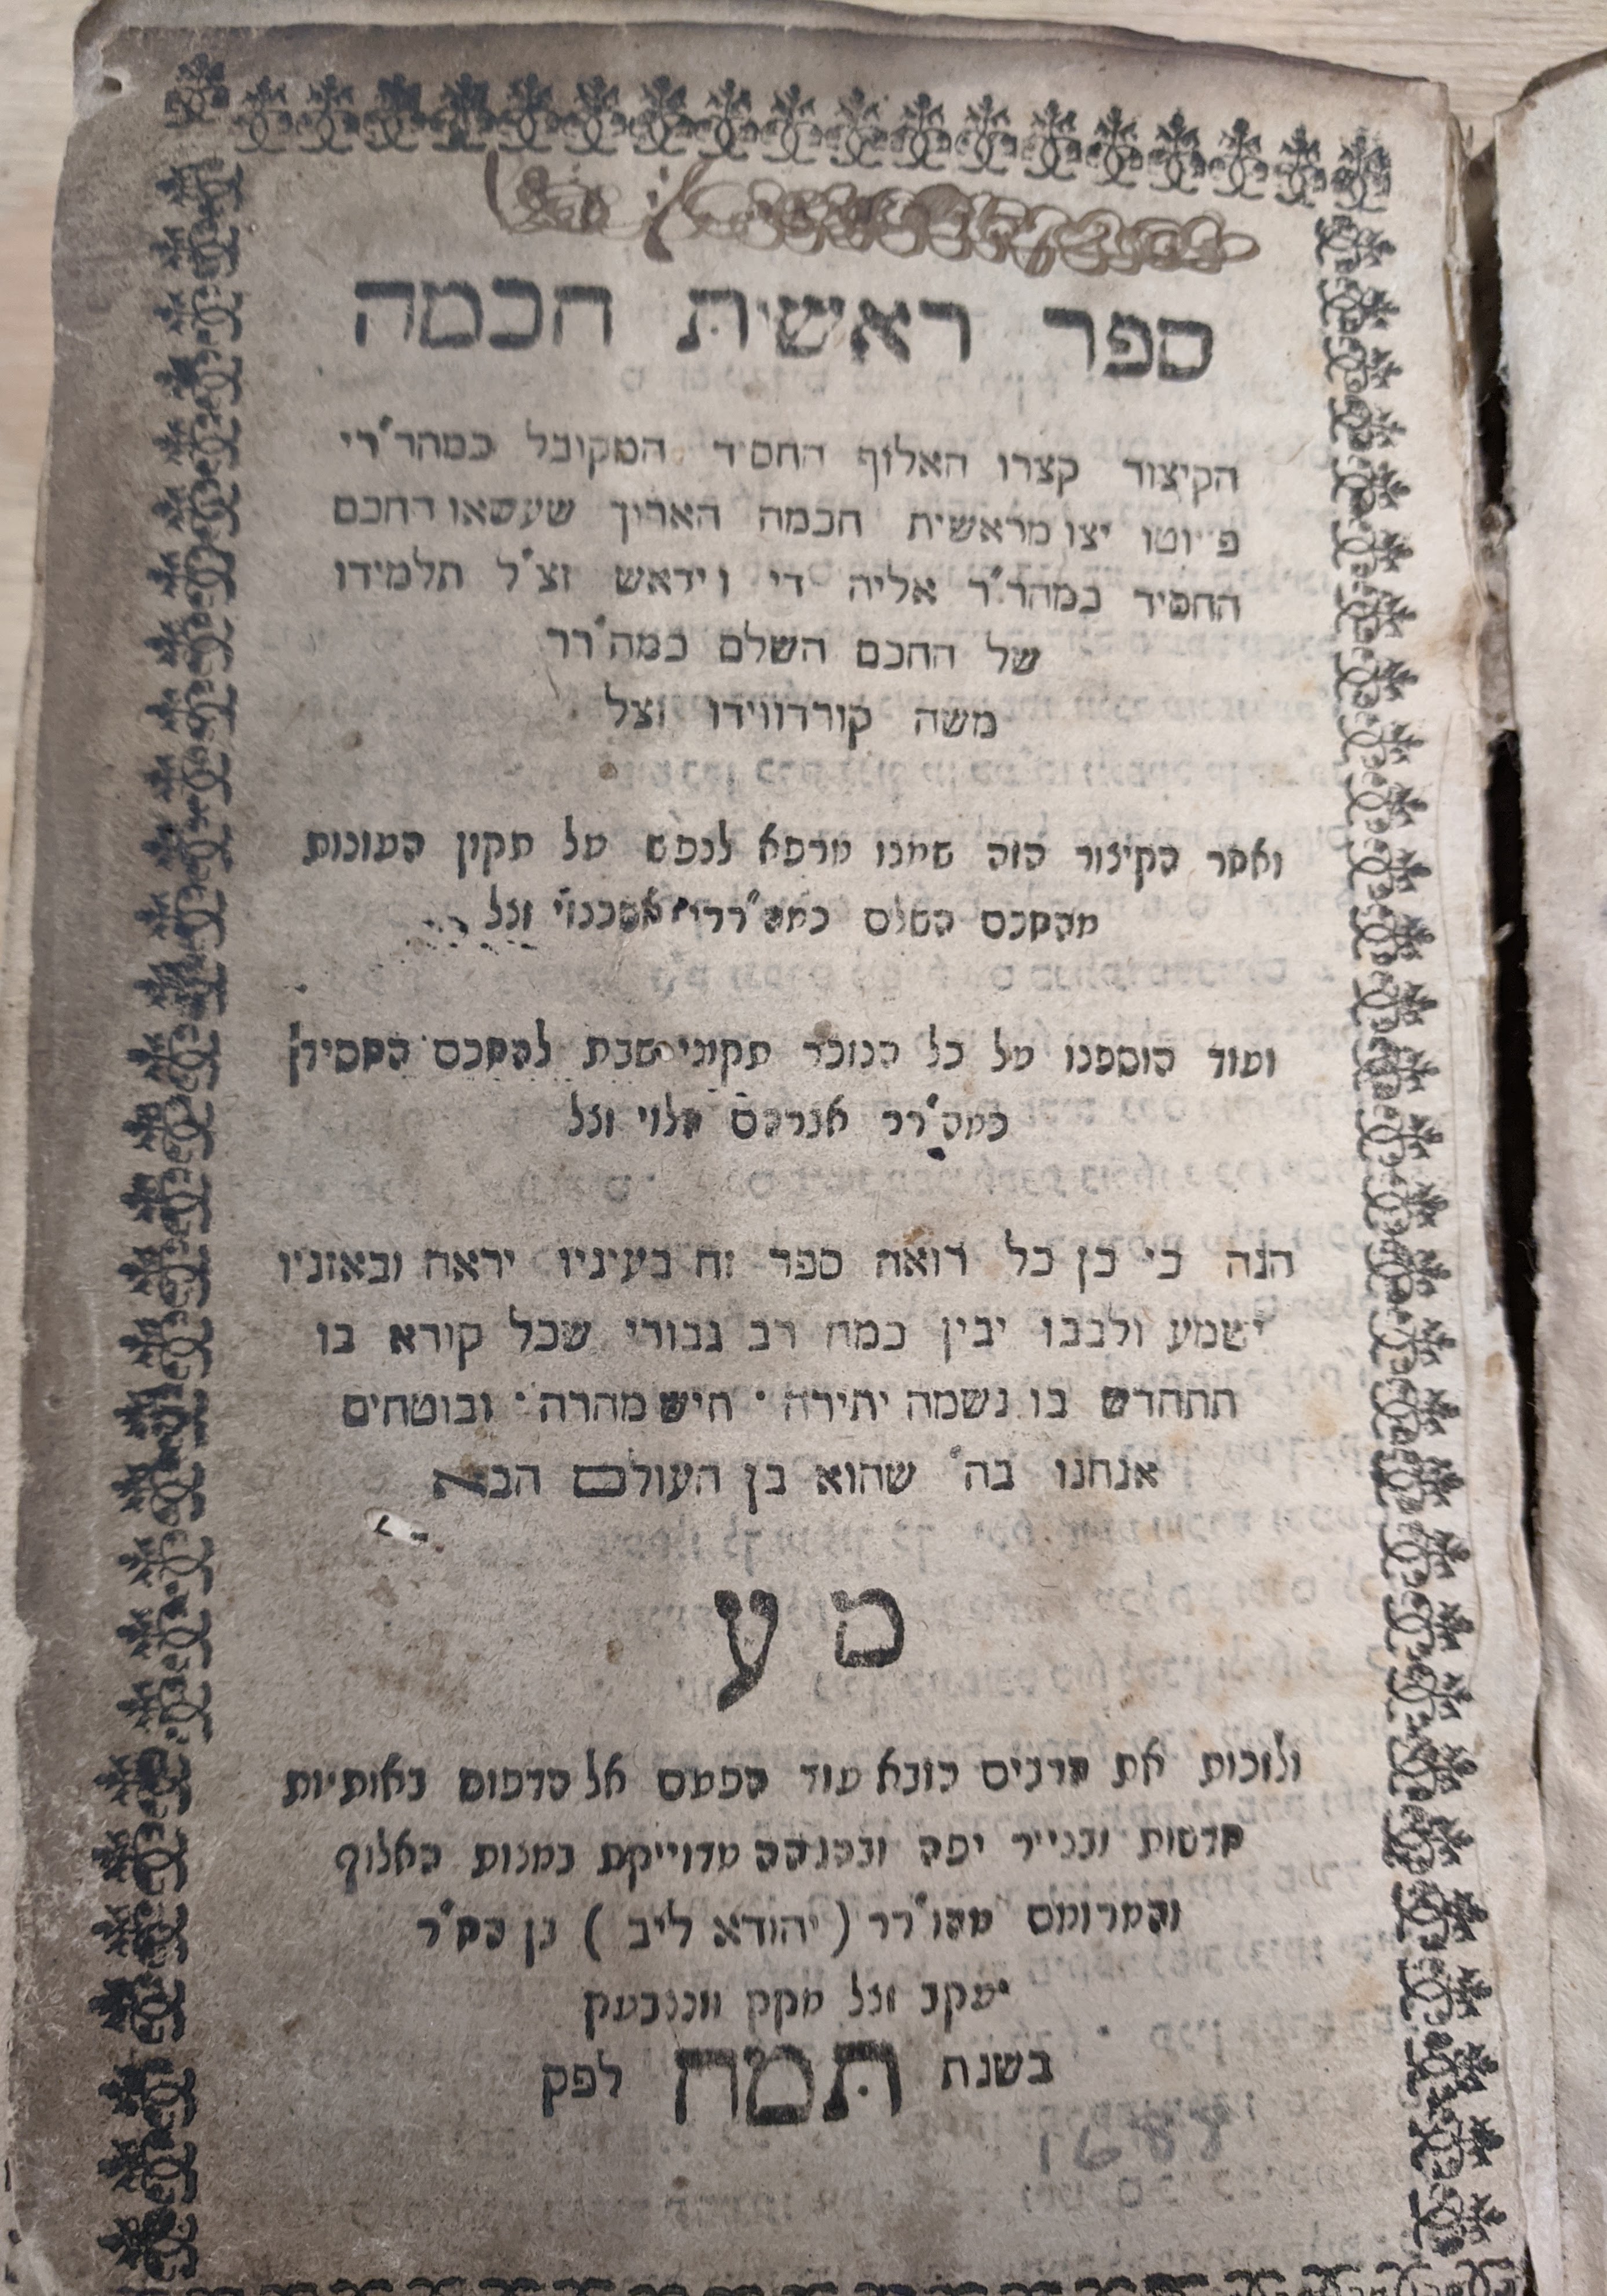 ספר ראשית חכמה
הקיצור קצרו האלוף החסיד המקובל כמהר"רי
פייוטו יצו מראשית חכמה הארוך שעשאו החכם
החסיד כמהר"ר אליה די וידאש זצ"ל תלמידו
של החכם השלם כמה"רר
משה קורדווידו זצל
ואחר הקיצור הזה שמנו מרפא לנפש על תקון העונות
מהחכם השלם כמה"ררי אשכנזי זצל
ועוד הוספנו על כל הנזכר תקוני שבת להחכם החסיד
כמה"רר אברהם הלוי זצל
הנה כי כן כל רואה ספר זה בעיניו יראה ובאזניו
ישמע ולבבו יבין כמה רב גבורי שכל קורא בו
תתחדש בו נשמה יתירה · חיש מהרה · ובוטחים
אנחנו בה' שהוא בן העולם הבא
מ ע
ולזכות את הרבים הובא עוד הפעם אל הדפוס באותיות
חדשות ובנייר יפה ובהגהה מדוייקת במצות האלוף
והמרומם מהו"רר (יהודא ליב) בן הח"ר
יעקב זצל מקק
בשנת תמח לפק
1688